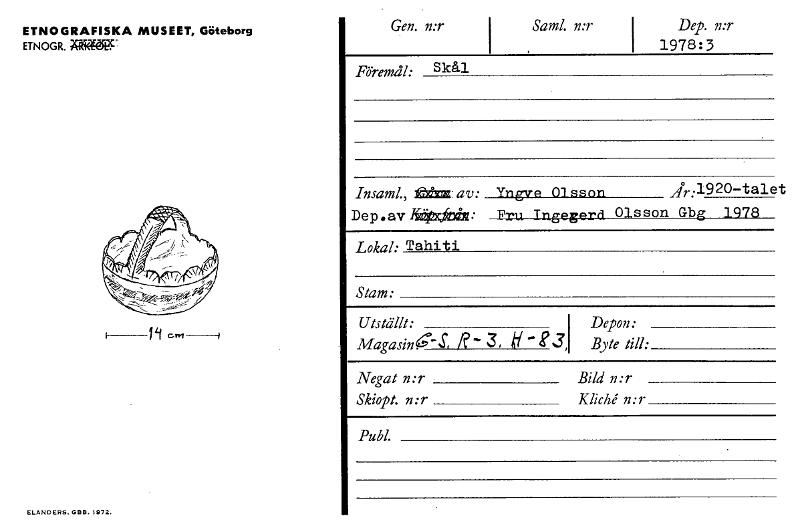 ETNOGRAFISKA MUSEET, Göteborg
ETNOGR. ARKEOL.
14 cm
ELANDERS. GBB. 1972.
Gen. n:r Saml. n:r Dep. n:r
1978:3
Föremål: Skål
Insaml., Gåva av: Yngve Olsson År: 1920-talet
Dep.av Köpt från: Fru Ingegerd Olsson Gbg 1978
Lokal: Tahiti
Stam:
Utställt: Depon:
Magasin G-S. R-3. H-83. Byte till:
Negat n:r Bild n:r
Skiopt. n:r Kliché n:r
Publ.